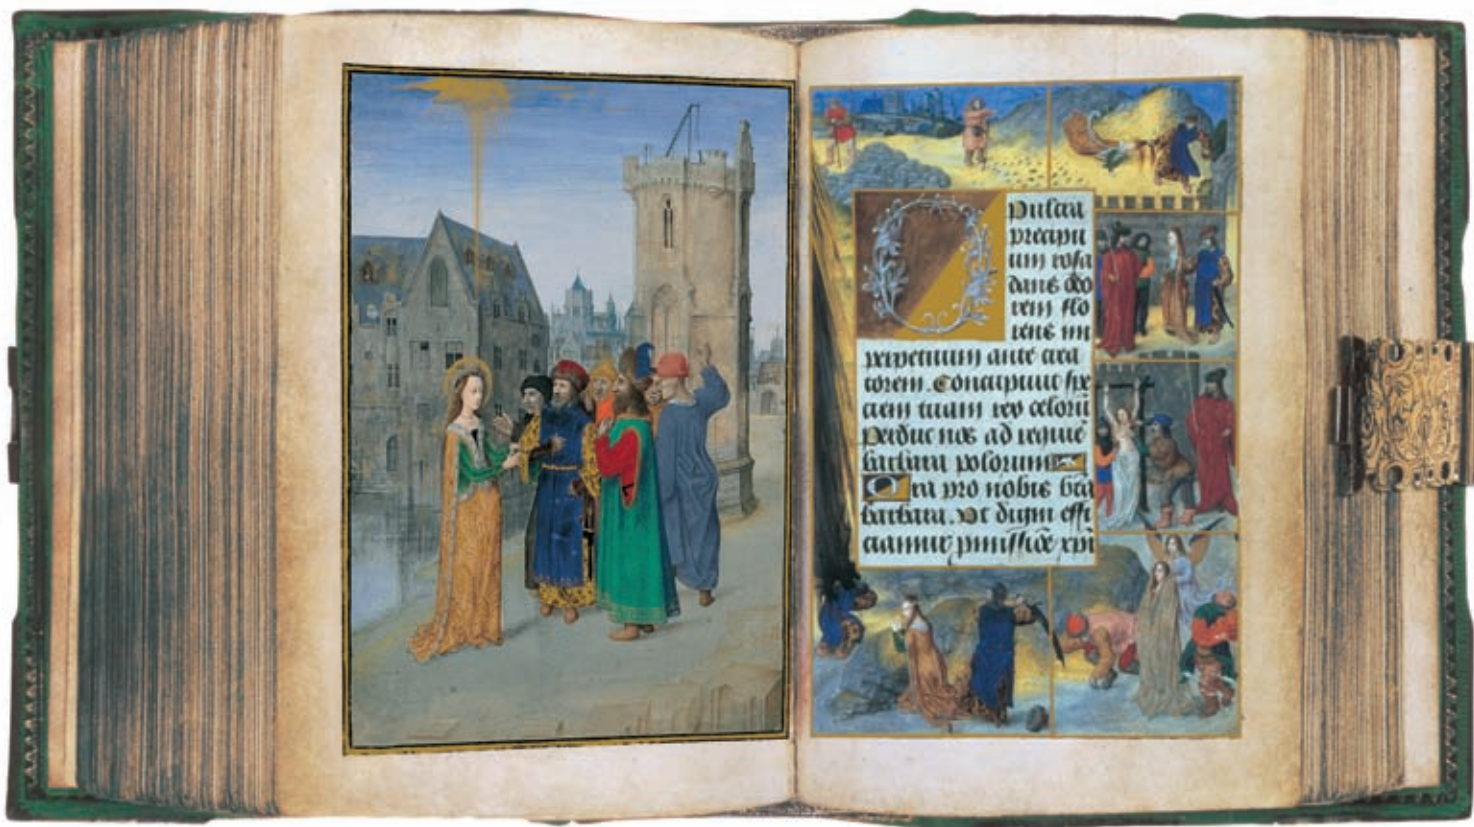 O pulcra
precipu
um rosa
dans odo
rem flo
rens in
perpetuum ante crea
torem. Concupiuit spe
ciem tuam rex celorū
Perduc nos ad requiē
barbara polorum
Ora pro nobis bea
barbara. Vt digni effi
ciamur xpi